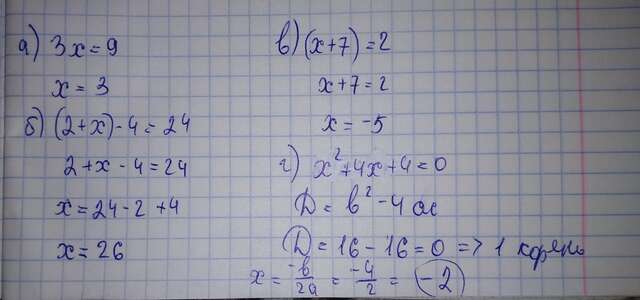 а) 3x = 9
x = 3
б) (2+x) - 4 = 24
2+x - 4 = 24
x = 24 - 2 + 4
x = 26
в) (x+7) = 2
x+7 = 2
x = -5
г) x² + 4x + 4 = 0
D = b² - 4ac
D = 16 - 16 = 0 => 1 корень
x = -b/2a = -4/2 = -2